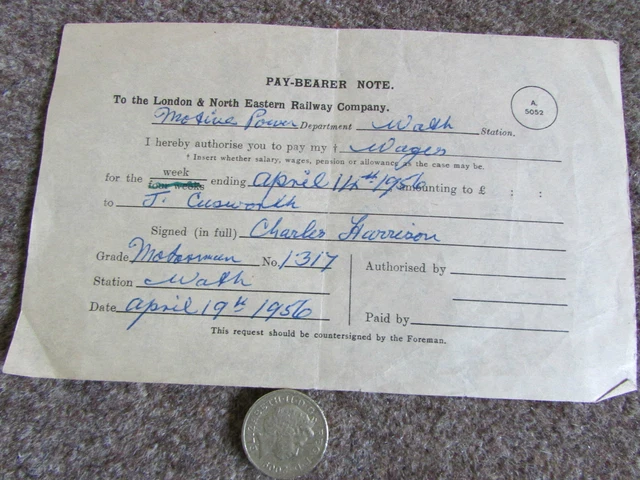 PAY-BEARER NOTE.
To the London & North Eastern Railway Company.
A.
5052
Motive Power Department Wath Station.
I hereby authorise you to pay my † Wages
† Insert whether salary, wages, pension or allowance as the case may be.
for the week
four weeks ending April 14th 1956 amounting to £ : :
to J. Cusworth
Signed (in full) Charles Harrison
Grade Motorman No. 1317
Authorised by
Station Wath
Date April 19th 1956
Paid by
This request should be countersigned by the Foreman.